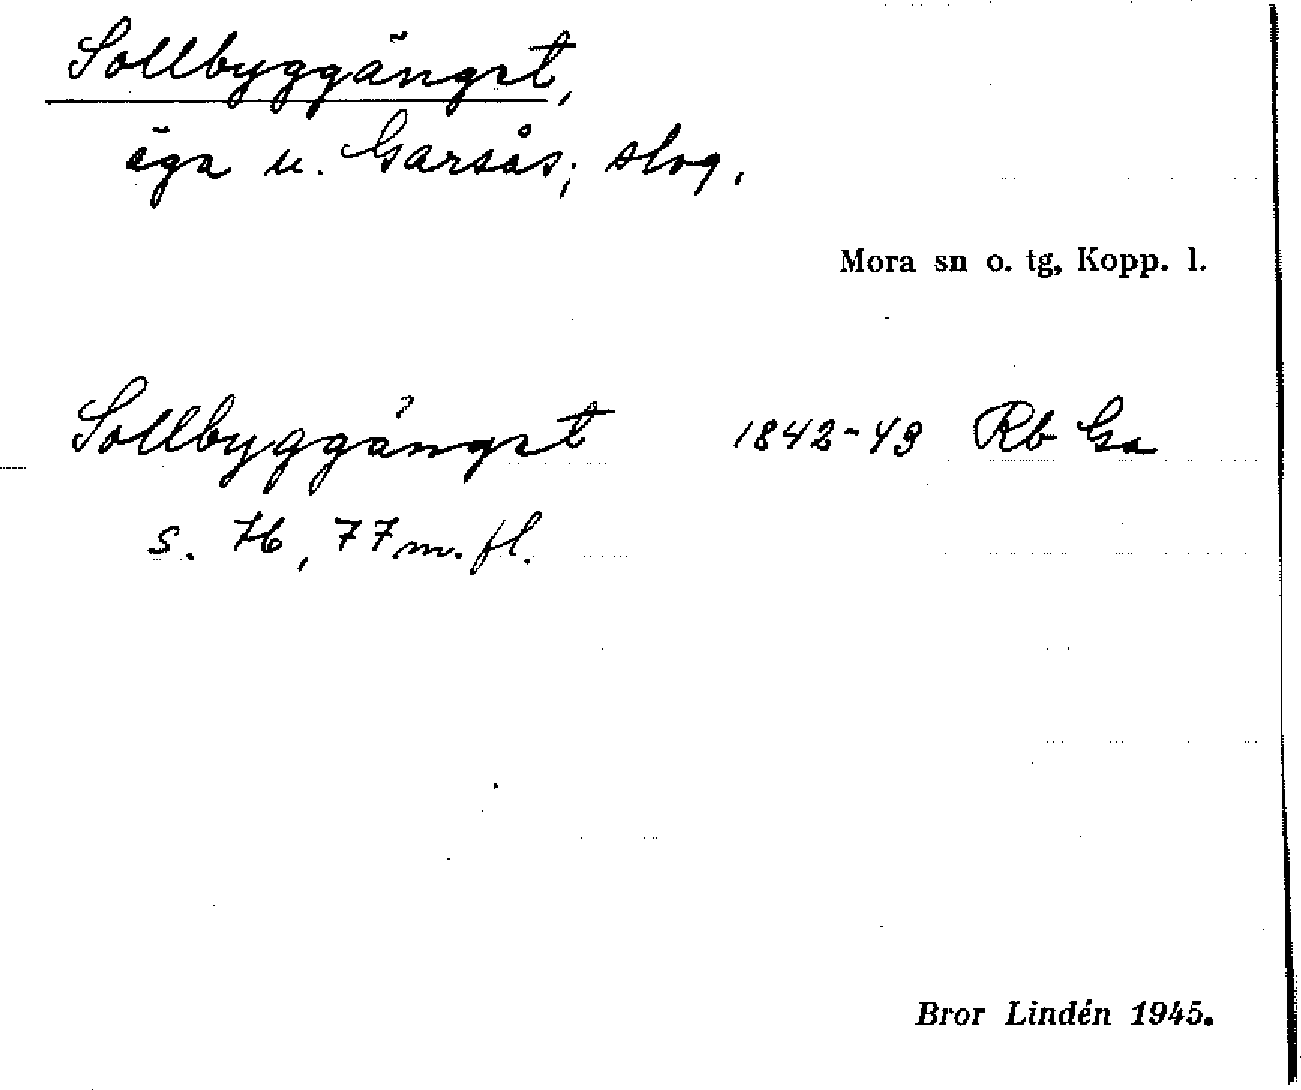 Sollbyggänget,
äga u. Garsås; slog.
Mora sn o. tg, Kopp. l.
Sollbyggånget 1842-43 Rb Ga
s. 76, 77 m. fl.
Bror Lindén 1945.